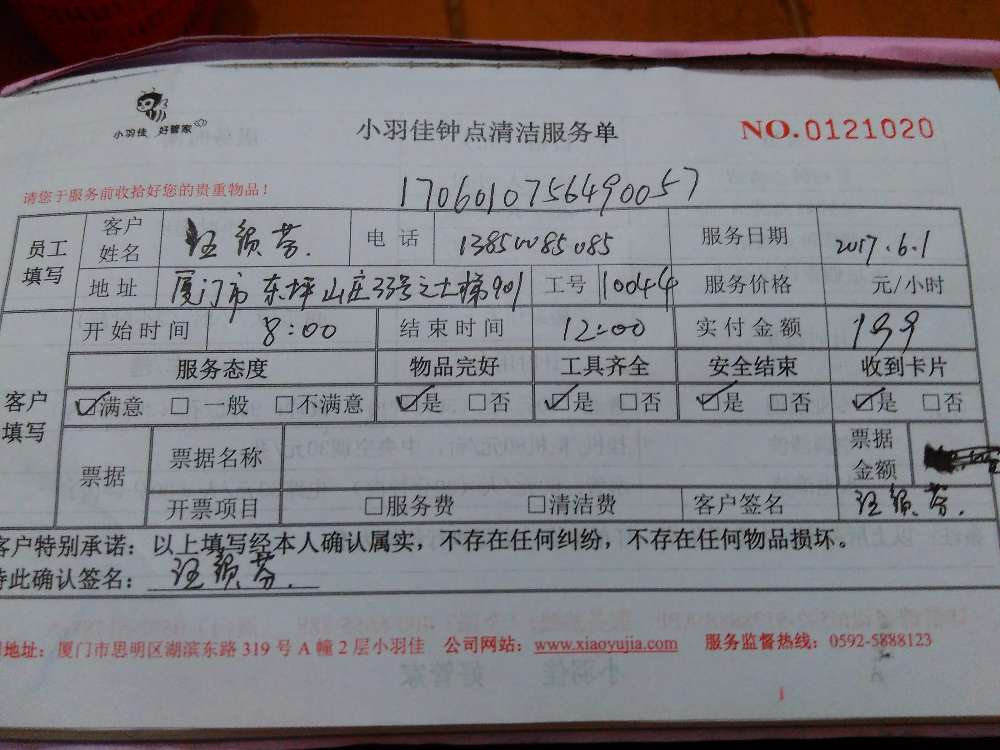 小羽佳 好管家
小羽佳钟点清洁服务单
NO.0121020
请您于服务前收拾好您的贵重物品！
170601075649 0057
员工填写 客户姓名 汪颖芬. 电话 13850085085 服务日期 2017.6.1
地址 厦门市东坪山庄33号之七梯901 工号 10044 服务价格 元/小时
客户填写 开始时间 8:00 结束时间 12:00 实付金额 199
服务态度 物品完好 工具齐全 安全结束 收到卡片
☑满意 □一般 □不满意 ☑是 □否 ☑是 □否 ☑是 □否 ☑是 □否
票据 票据名称 票据金额
开票项目 □服务费 □清洁费 客户签名 汪颖芬.
客户特别承诺：以上填写经本人确认属实，不存在任何纠纷，不存在任何物品损坏。
特此确认签名：汪颖芬.
地址：厦门市思明区湖滨东路 319 号 A 幢 2 层小羽佳 公司网站：www.xiaoyujia.com 服务监督热线：0592-5888123
1